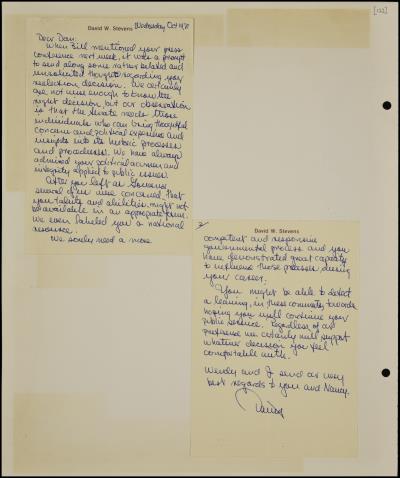 [122]
David W. Stevens
Wednesday Oct
Dear Dan:
When Bill mentioned your press
conference next week, it was a prompt
to send along some rather belated and
unsolicited thoughts regarding your
reelection decision. We certainly
are not wise enough to know the
right decision, but our observation
is that the Senate needs those
individuals who can bring thoughtful
concern and political expertise and
insights into its historic processes
and procedures. We have always
admired your political acumen and
integrity applied to public issues.
After you left as Governor
several of us were concerned that
your talents and abilities might not
be available in an appropriate forum.
We even labeled you a national
resource.
We sorely need a more
2
David W. Stevens
competent and responsive
governmental process and you
have demonstrated great capacity
to influence those processes during
your career.
You might be able to detect
a leaning, in these comments, towards
hoping you will continue your
public service. Regardless of our
preference we certainly will support
whatever decision you feel
comfortable with.
Wendy and I send our very
best regards to you and Nancy.
David